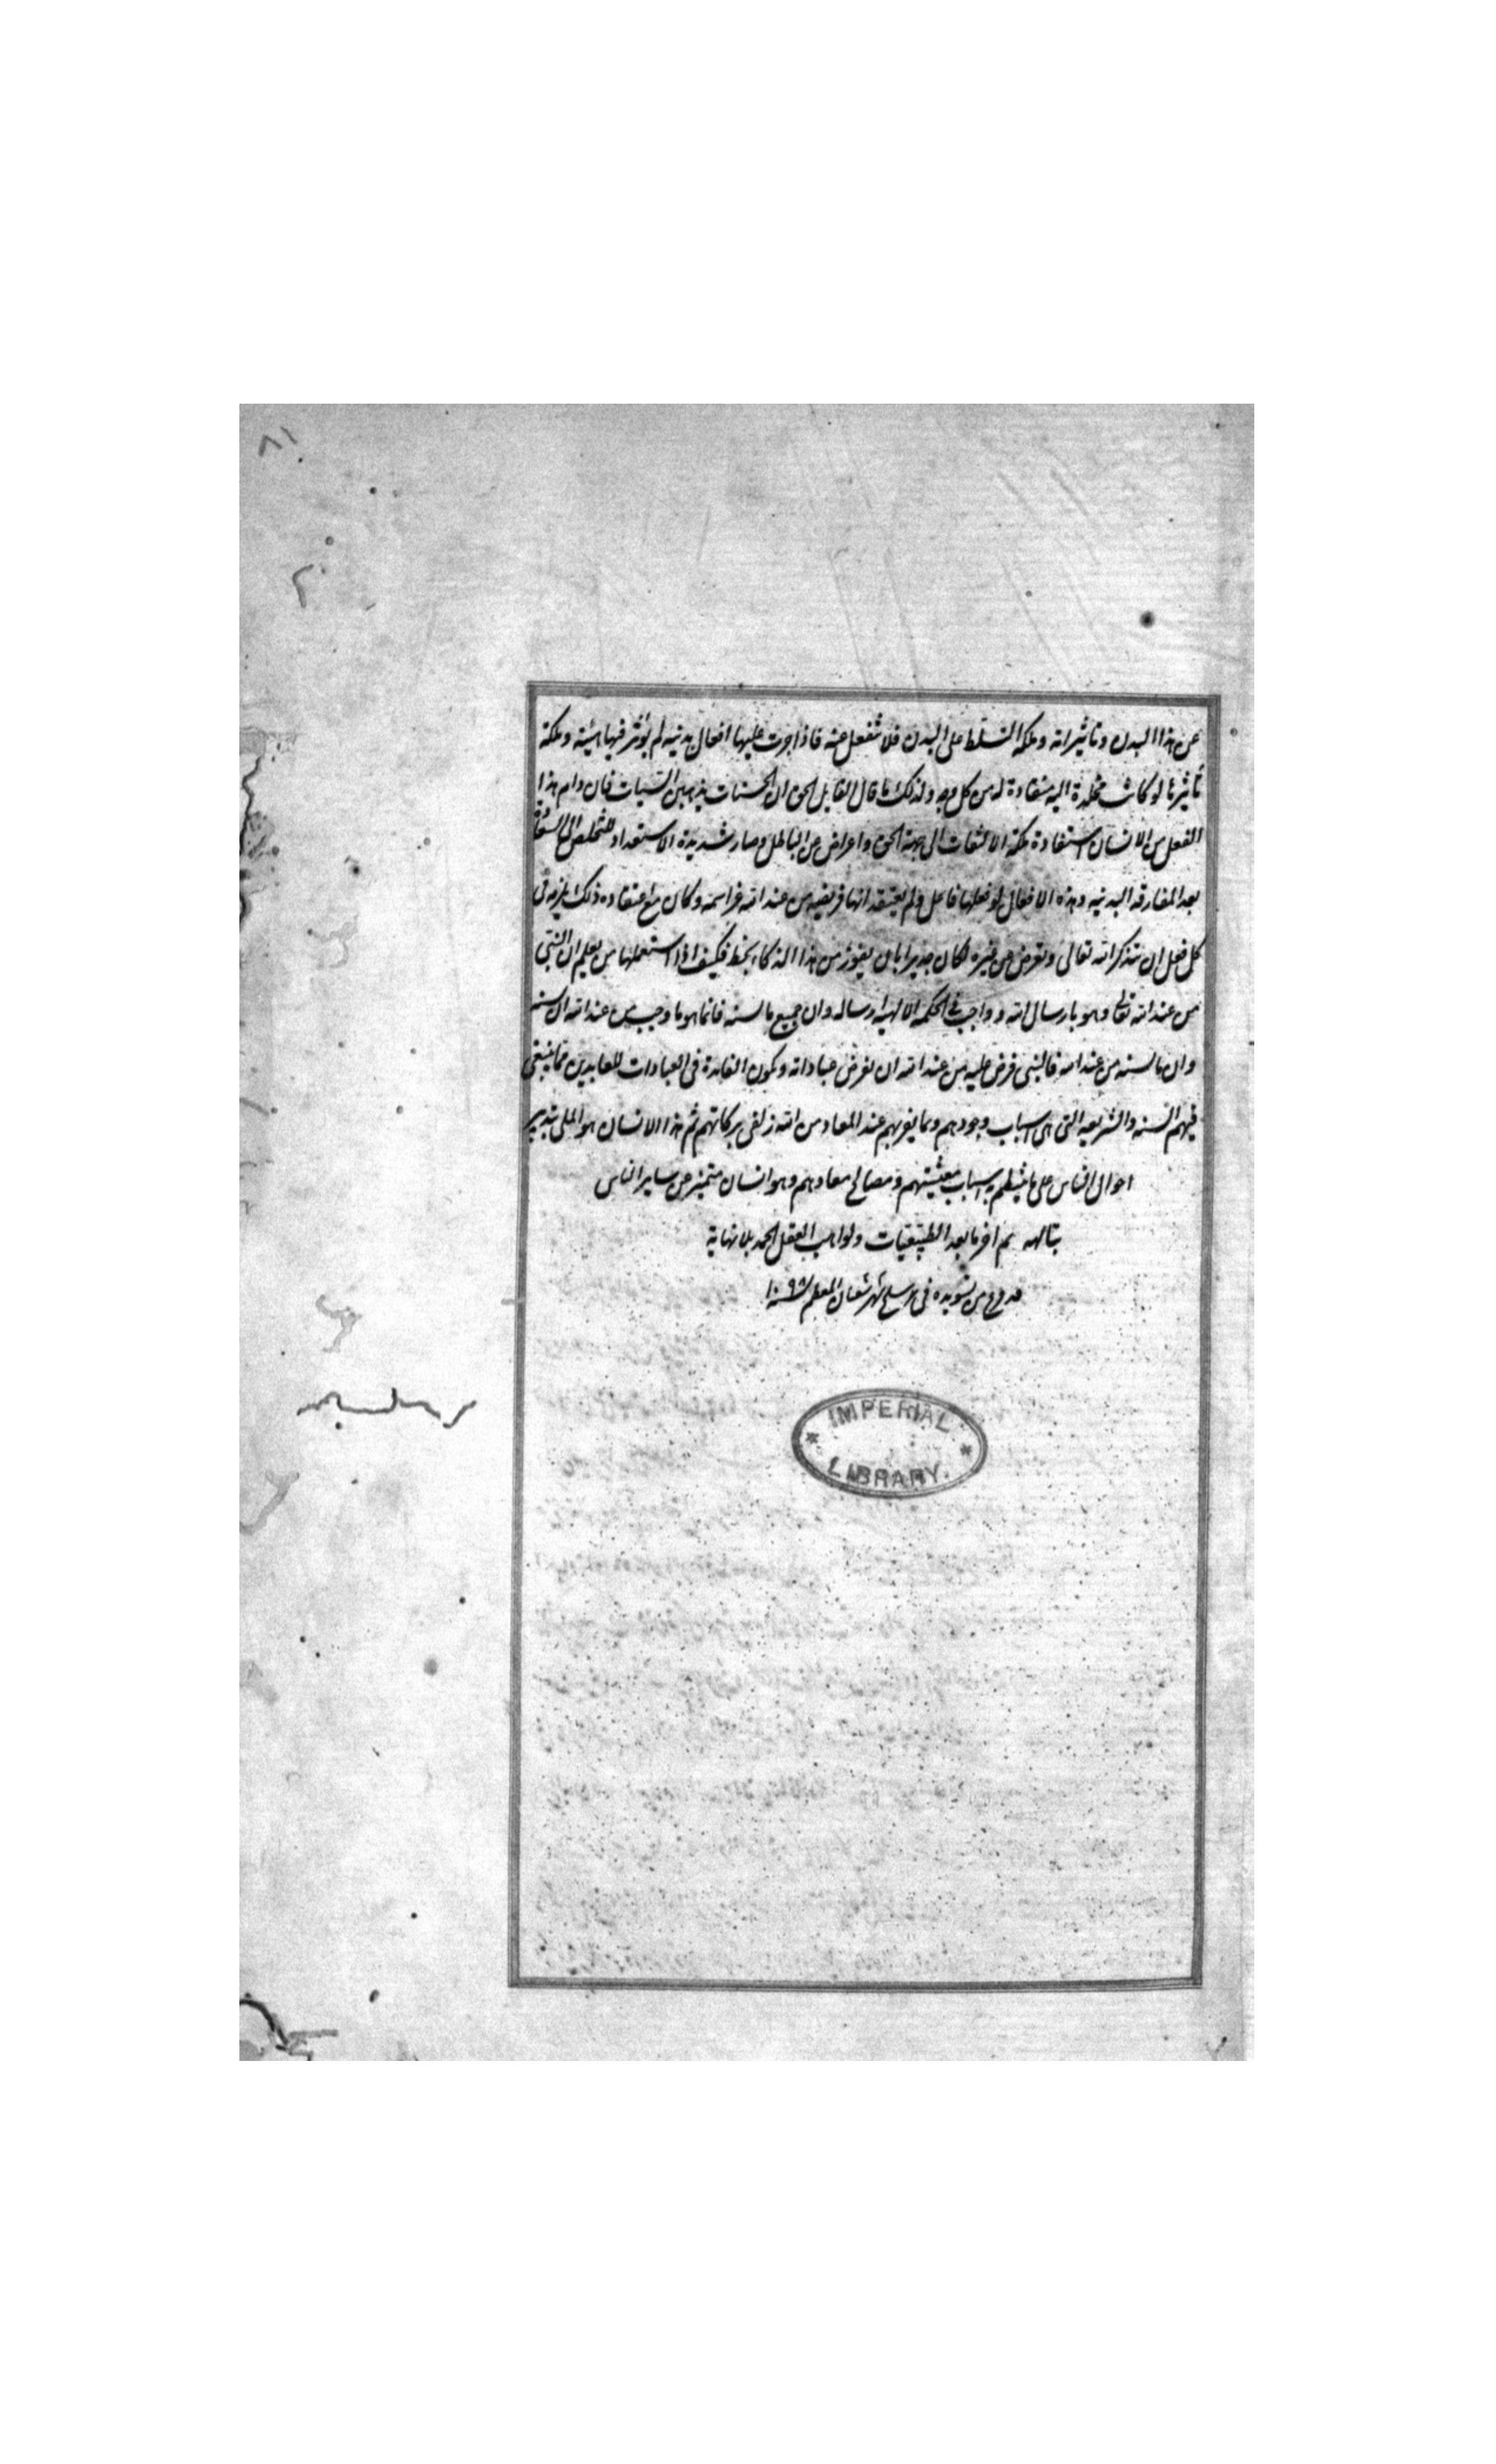 ٨١
عن هذا البدن وتاثيراته وملكه التسلط على البدن فلا تنفعل عنه فاذا جرت عليها افعال بدنيه لم يؤثر فيها هيئة وملكة
تاثيرها لو كانت مخلدة اليه منقادة له من كل وجه ولذلك ما قال القايل الحق ان الحسنات يذهبن السيات فان دام هذا
الفعل من الانسان استفادة ملكة الالتفات الى جهة الحق واعراض عن الباطل وصار شديدة الاستعداد للتخلص الى السعادة
بعد المفارقه البدنيه وهذه الافعال لو فعلها فاعل ولم يعتقد انها فريضه من عند الله وكان مع اعتقاده ذلك يلزمه فى
كل فعل ان يتذكر الله تعالى ويعرض عن غيره لكان جديرا بان يفوز من هذا الذكاء بحظ فكيف اذا استعملها من يعلم ان النبى
من عند الله تعالى وهو بارسال الله وواجب فى الحكمه الالهية ارساله وان جميع ما لسنه فانما هو ما وجب من عند الله ان لسنه
وان ما لسنه من عند الله فالنبى فرض عليه من عند الله ان يفرض عباداته وتكون الفايدة فى العبادات للعابدين مما يبقى
فيهم السنه والشريعه التى هى اسباب وجودهم وبما يقربهم عند المعاد من الله زلفى بركاتهم ثم هذا الانسان هو الملى بتدبير
احوال الناس على ما ينتظم به اسباب معيشتهم ومصالح معادهم وهو انسان متميز عن ساير الناس
بتالهه تم اخر ما بعد الطبيعيات ولواهب العقل الحمد بلا نهاية
من تسويده فى سلخ شهر شعبان المعظم سنة ١٠٩٨
IMPERIAL
LIBRARY.